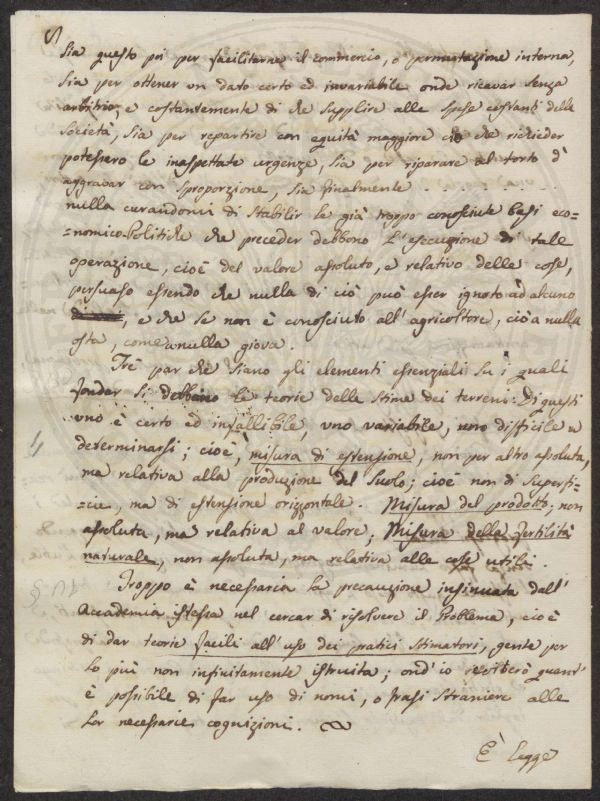 Sia questo poi per facilitarne il commercio, o permutazione interna,
Sia per ottener un dato certo ed invariabile onde ricavar senza
arbitrio, e costantemente di che supplire alle spese costanti della
Società, Sia per repartire con equità maggiore ciò che richieder
potessero le inaspettate urgenze, Sia per riparare al torto d'
aggravar con sproporzione, Sia finalmente . . . . . .
nulla curandomi di stabilir le già troppo conosciute basi eco=
=nomico-Politiche che preceder debbono l'esecuzione di tale
operazione, cioè del valore assoluto, e relativo delle cose,
persuaso essendo che nulla di ciò può esser ignoto ad alcuno
, e che se non è conosciuto all'agricoltore, ciò a nulla
osta, come a nulla giova.
Trè par che siano gli elementi essenziali su i quali
fondar si debbano le teorie delle stime dei terreni: Di questi
uno è certo ed infallibile, uno variabile, uno difficile a
determinarsi; cioè, misura di estensione, non per altro assoluta,
ma relativa alla produzione del Suolo; cioè non di superfi=
=cie, ma di estensione orizzontale. Misura del prodotto; non
assoluta, ma relativa al valore; Misura della fertilità
naturale, non assoluta, ma relativa alle cose utili.
Troppo è necessaria la precauzione insinuata dall'
Accademia istessa nel cercar di risolvere il Problema, cioè
di dar teorie facili all'uso dei pratici Stimatori, gente per
lo più non infinitamente istruita; ond'io eviterò quant'
è possibile di far uso di nomi, o frasi straniere alle
lor necessarie cognizioni.
È legge